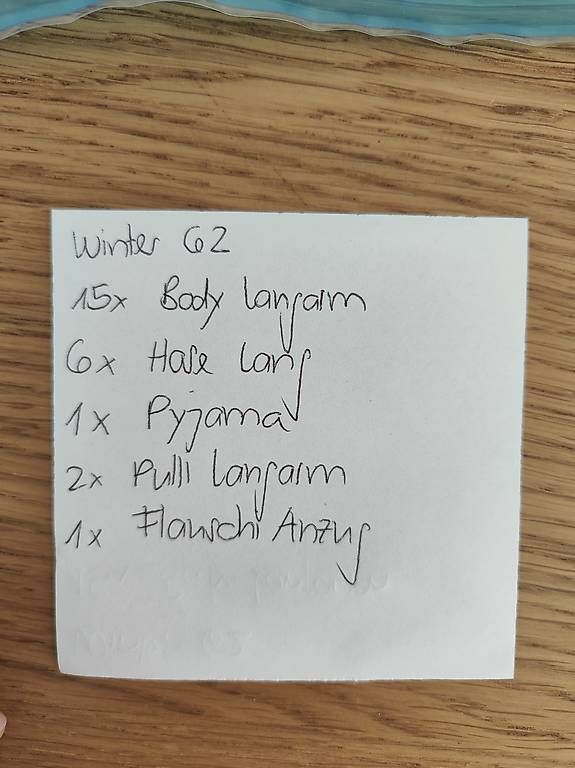 Winter 62
15x Body langarm
6x Hose lang
1x Pyjama
2x Pulli langarm
1x Flauschi Anzug